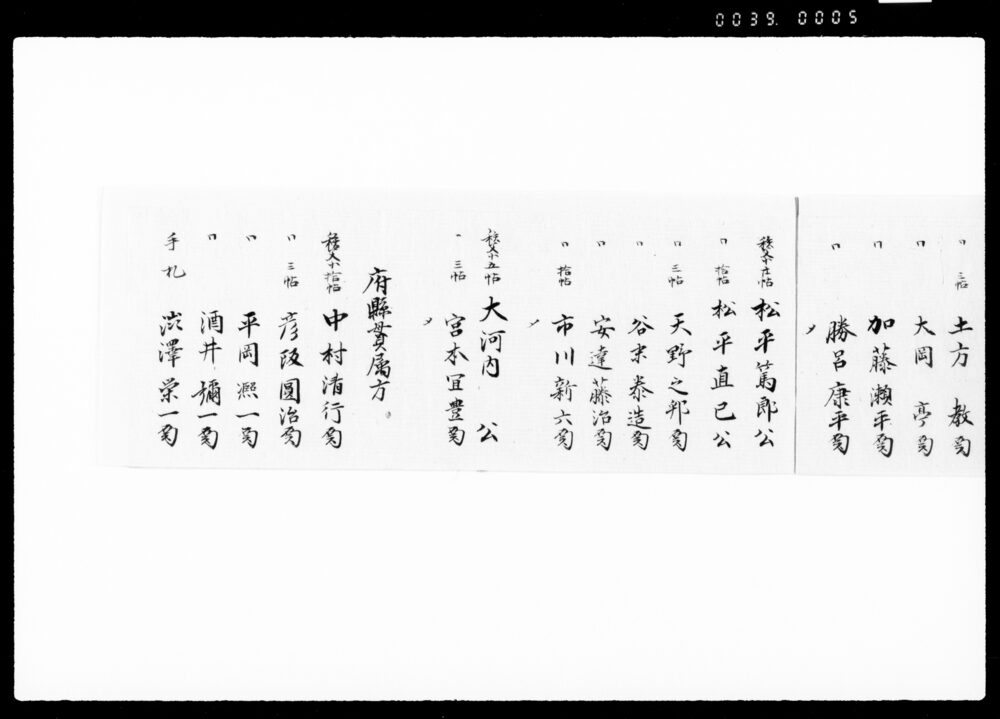 0039.0005
〃 三帖 土方 教殿
〃 大岡 亭殿
〃 加藤瀬平殿
〃 勝呂康平殿
〆
拾帖 松平篤郎公
〃 拾帖 松平直己公
〃 三帖 天野之邦殿
〃 谷 泰造殿
〃 安達藤治殿
〃 拾帖 市川新六殿
〆
五帖 大河内 公
〃 三帖 宮本宜豊殿
〆
府縣貫属方。
拾帖 中村清行殿
〃 三帖 彦坂圓治殿
〃 平岡凞一殿
〃 酒井彌一殿
手札 渋澤栄一殿